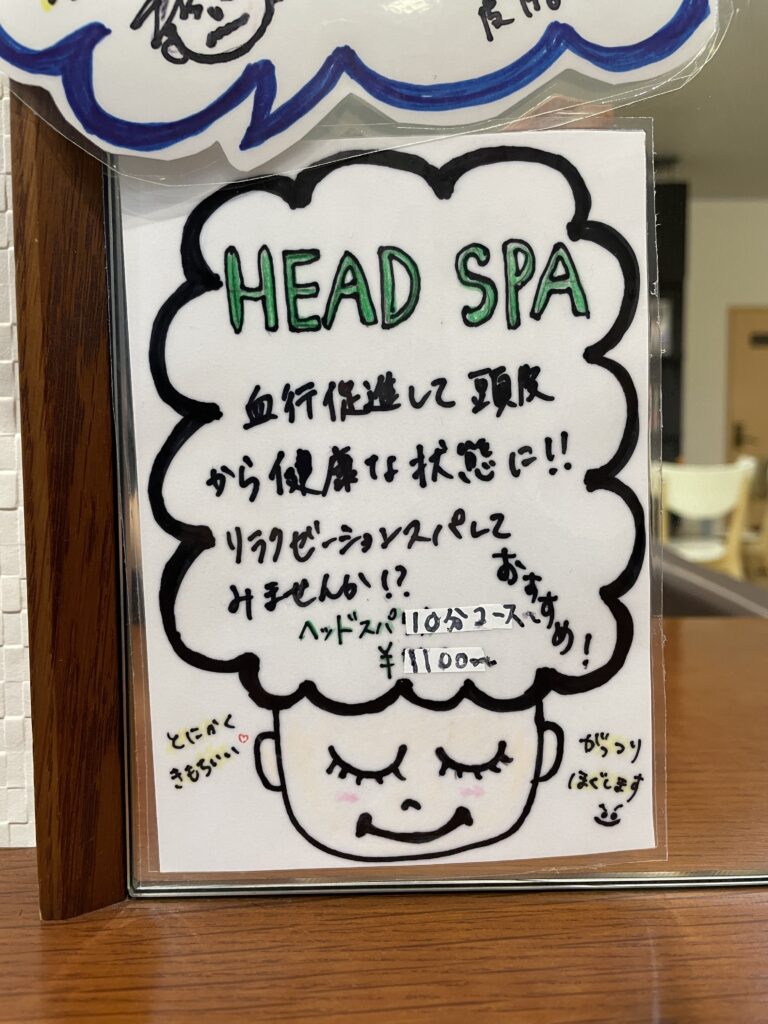 HEAD SPA
血行促進して 頭皮
から健康な状態に!!
リラクゼーションスパして
みませんか!?
おすすめ!
ヘッドスパ 10分コース~
¥1100~
とにかく
きもちいい♡
がっつり
ほぐします